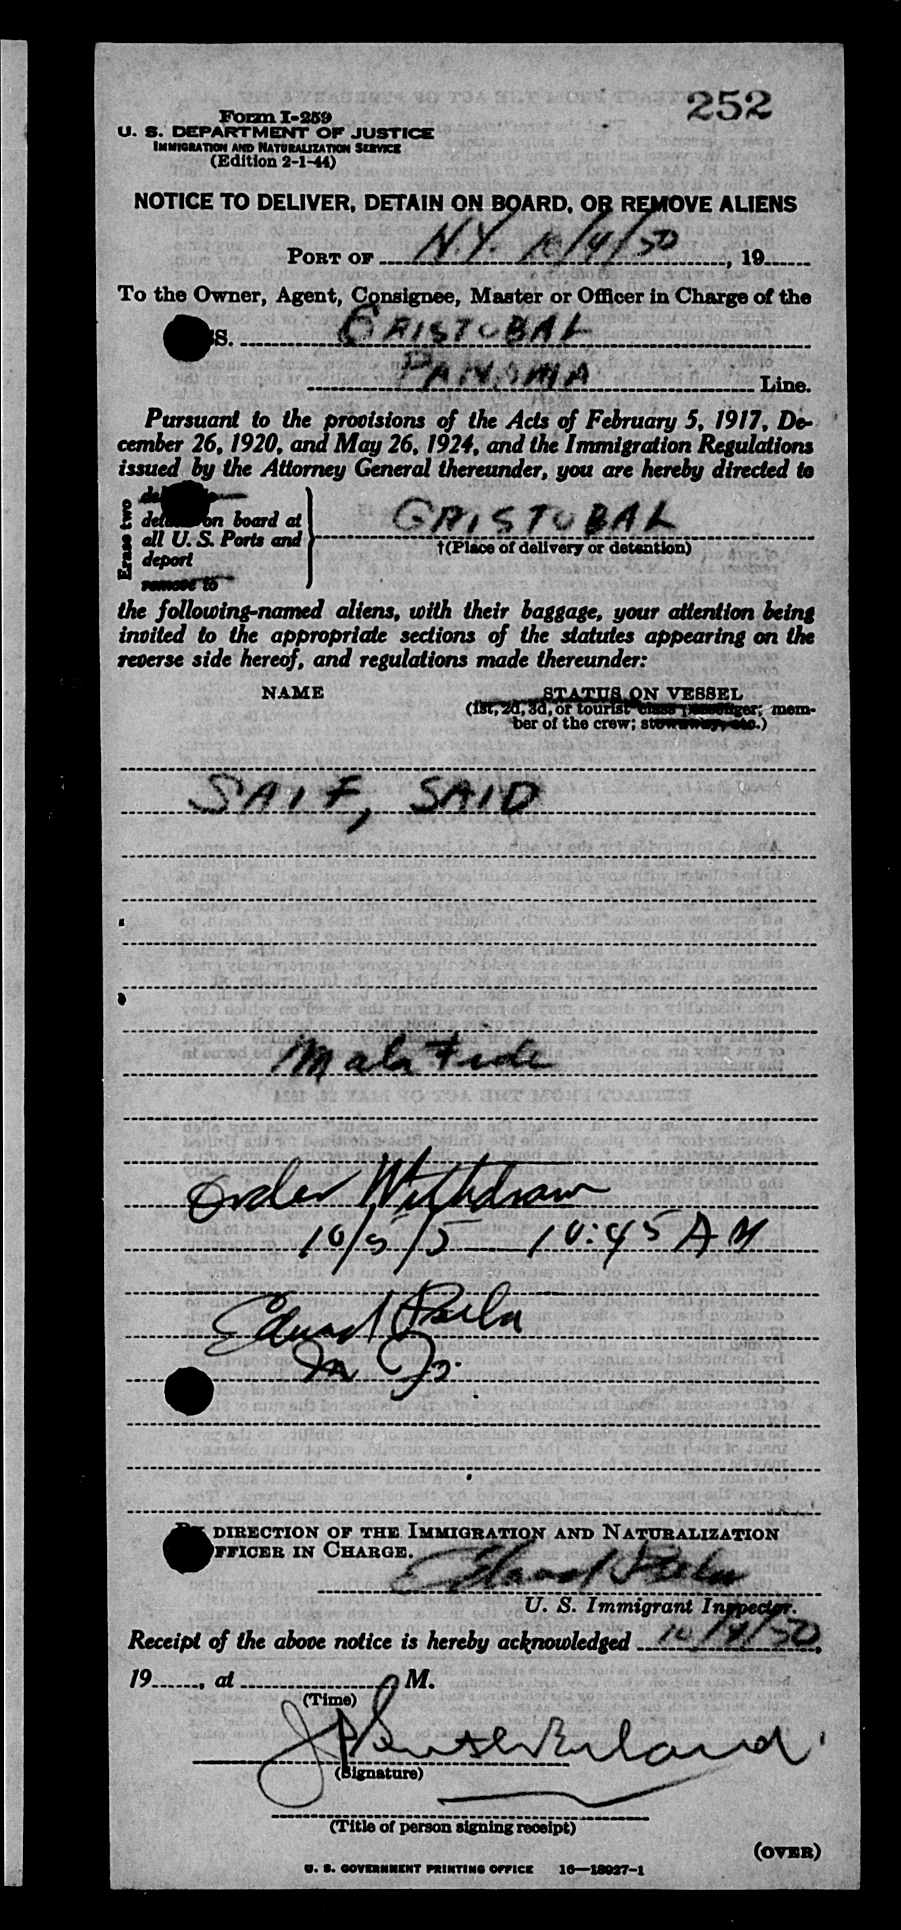 252
Form I-259
U. S. DEPARTMENT OF JUSTICE
IMMIGRATION AND NATURALIZATION SERVICE
(Edition 2-1-44)
NOTICE TO DELIVER, DETAIN ON BOARD, OR REMOVE ALIENS
PORT OF N.Y. 10/4/50, 19
To the Owner, Agent, Consignee, Master or Officer in Charge of the
SS. CRISTOBAL
PANAMA Line.
Pursuant to the provisions of the Acts of February 5, 1917, De-
cember 26, 1920, and May 26, 1924, and the Immigration Regulations
issued by the Attorney General thereunder, you are hereby directed to
Erase two
detain on board at
all U. S. Ports and
deport
remove to
CRISTOBAL
†(Place of delivery or detention)
the following-named aliens, with their baggage, your attention being
invited to the appropriate sections of the statutes appearing on the
reverse side hereof, and regulations made thereunder:
NAME STATUS ON VESSEL
(1st, 2d, 3d, or tourist class passenger; mem-
ber of the crew; stowaway, etc.)
SAIF, SAID
Mala Fide
Order Withdrawn
10/5/5 10:45 AM
BY DIRECTION OF THE IMMIGRATION AND NATURALIZATION
OFFICER IN CHARGE.
U. S. Immigrant Inspector.
Receipt of the above notice is hereby acknowledged 10/4/50,
19, at M.
(Time)
(Signature)
(Title of person signing receipt)
(OVER)
U. S. GOVERNMENT PRINTING OFFICE 16—18027-1